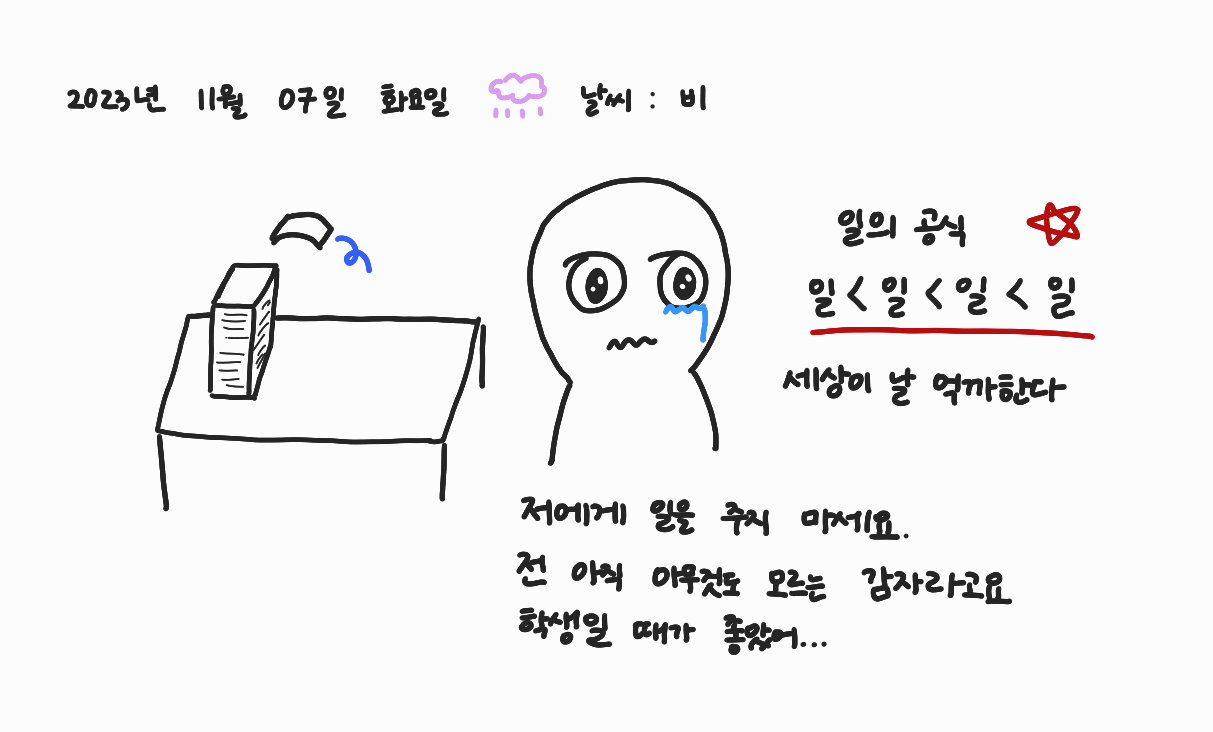 2023년 11월 07일 화요일 날씨 : 비
일의 공식
일 < 일 < 일 < 일
세상이 날 억까한다
저에게 일을 주지 마세요.
전 아직 아무것도 모르는 감자라고요
학생일 때가 좋았어...